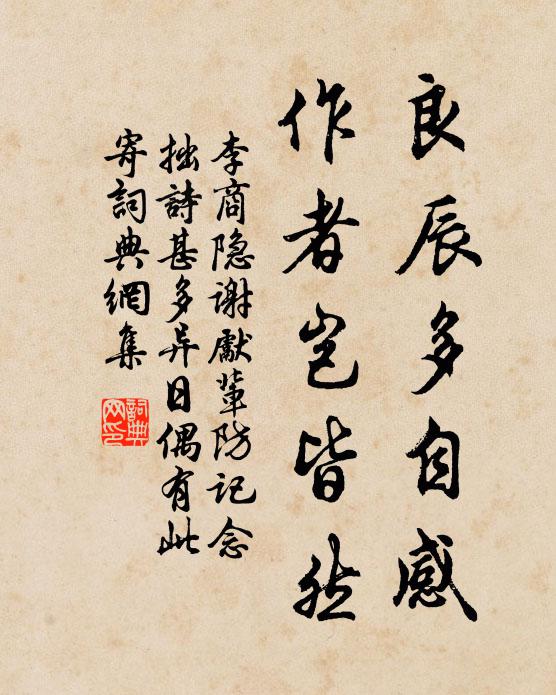 良辰多自感
作者岂皆然
李商隐谢獻輩防記念
拙詩甚多异日偶有此
寄詞典網集
詞典
网印